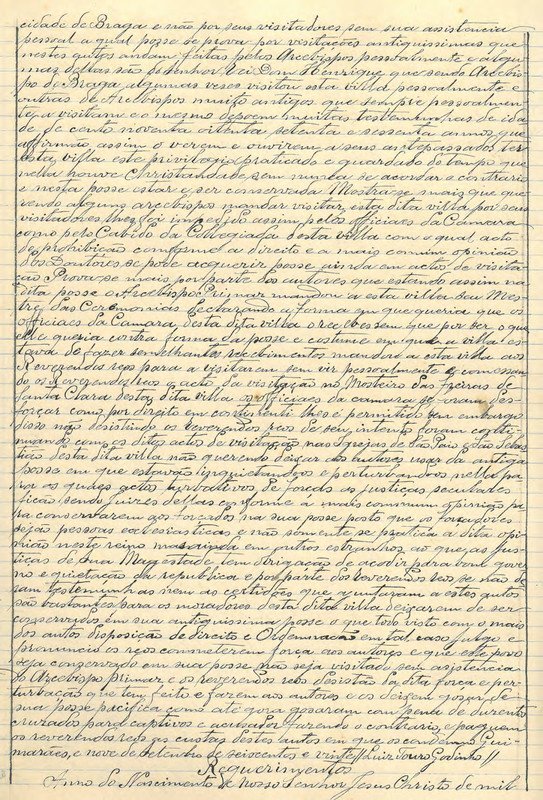 cidade de Braga e não por seus visitadores sem sua assistencia
pessoal a qual posse se prova por visitações antiquissimas que
nestes autos andam feitas pelos Arcebispos pessoalmente e algu
mas dellas são do senhor Rei Dom Henrique que sendo Arcebis
po de Braga algumas veses visitou esta villa pessoalmente e
outras de Arcebispos muito antigos que sempre pessoalmen
te a visitaram e o mesmo depoem muitas testemunhas de ida
de de cento noventa oitenta setenta e sessenta annos que
affirmão assim o verem e ouvirem a seus antepassados ter
esta villa este privilegio praticado e guardado do tempo que
nella houve Christandade sem nunca se acordar o contrario
e nesta posse estar e ser conservada Mostra-se mais que que
rendo alguns arcebispos mandar visitar esta dita villa por seus
visitadores lhes foi impedido assim pelos officiaes da Camara
como pelo Cabido da Collegiada desta villa com o qual acto
de prohibição conforme a direito e a mais commum opinião
dos Doutores se pode acquerir posse ainda em actos de visita
ção Prova-se mais por parte dos autores que estando assim na
dita posse o Arcebispo Primaz mandou a esta villa seu Mes
tre das Ceremonias declarando a forma em que queria que os
officiaes da Camara desta dita villa o recebessem que por ser o que
elle queria contra forma da posse e costume em que a villa es
tava de fazer semelhantes recebimentos mandou a esta villa aos
Reverendos reos para a visitarem sem vir pessoalmente e comessan
do os Reverendos reos o acto da visitação no Mosteiro das Freiras de
Santa Clara desta dita villa os officiaes da camara se foram des-
forçar como por direito em continenti lhes é permitido sem embargo
disso não desistindo os reverendos reos de seu intento foram conti-
nuando com os ditos actos de visitação nas Igrejas de São Paio e São Sebas
tião desta dita villa não querendo deixar aos autores usar da antiga
posse em que estavão inquietando-os e perturbando-os nella pa-
ra os quaes actos turbativos de forças as justiças seculares
ficão sendo juizes dellas conforme á mais commum opinião pa
ra conservarem aos forçados na sua posse posto que os forçadores
sejão pessoas ecclesiasticas e não somente se pratica a dita opi
nião neste reino mas ainda em outros estranhos ao que as jus
tiças de Sua Magestade tem obrigação de acodir para bom gover
no e quietação da republica e por parte dos reverendos reos se não de
ram testemunhas nem as certidões que ajuntaram a estes autos
são bastantes para os moradores desta dita villa deixarem de ser
conservados em sua antiquissima posse o que tudo visto com o mais
dos autos disposição de direito e Ordenação em tal caso julgo e
pronuncio os reos cometerem força aos autores e que este povo
seja conservado em sua posse não seja visitado sem asistencia
do Arcebispo Primaz e os reverendos reos desistão da dita força e per-
turbação que tem feito e fazem aos autores e os deixem gosar de
sua posse pacifica como até gora gosaram com pena de duzentos
cruzados para captivos e acusador fazendo o contrario e paguem
os reverendos reos as custas destes autos em que os condemno Gui-
marães, e nove de setembro de seiscentos e vinte // Luiz Godinho //
Requerimentos
Anno do Nascimento de Nosso Senhor Jesus Christo de mil